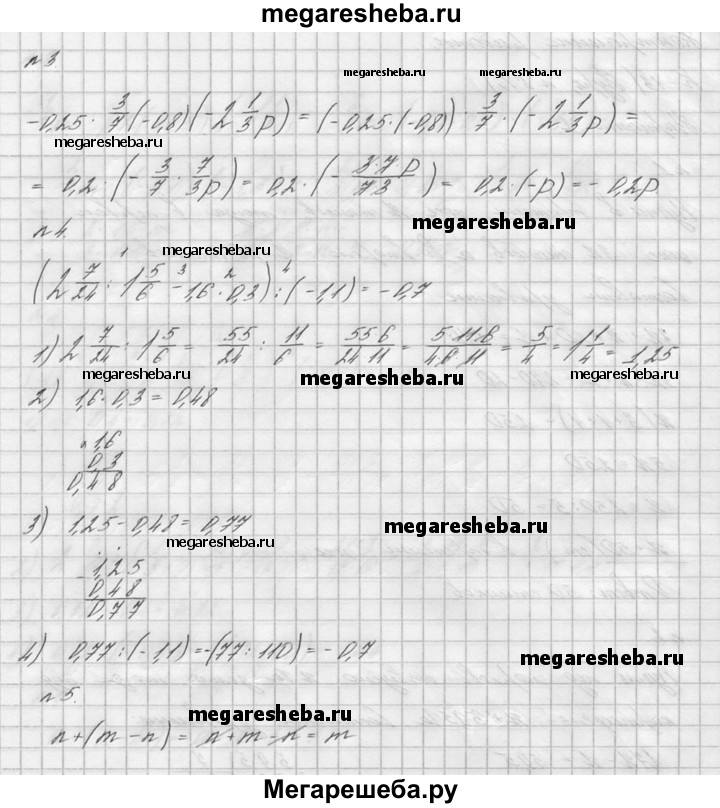 megaresheba.ru
n 3
megaresheba.ru megaresheba.ru
-0,25 · 3/7 (-0,8) (-2 1/3 p) = (-0,25 · (-0,8)) · 3/7 · (-2 1/3 p) =
megaresheba.ru
= 0,2 · (- 3/7 · 7/3 p) = 0,2 · (- 3·7p/7·3) = 0,2 · (-p) = -0,2p
megaresheba.ru
n 4.
megaresheba.ru
1 3 2 4
(2 7/24 : 1 5/6 - 1,6 · 0,3) : (-1,1) = -0,7
1) 2 7/24 : 1 5/6 = 55/24 : 11/6 = 55·6/24·11 = 5·11·6/4·6·11 = 5/4 = 1 1/4 = 1,25
megaresheba.ru megaresheba.ru megaresheba.ru
2) 1,6 · 0,3 = 0,48
× 1,6
0,3
0,48
3) 1,25 - 0,48 = 0,77
megaresheba.ru
megaresheba.ru
- 1,25
0,48
0,77
4) 0,77 : (-1,1) = -(77 : 110) = -0,7
megaresheba.ru
n 5.
megaresheba.ru
n + (m - n) = n + m - n = m
Мегарешеба.ру